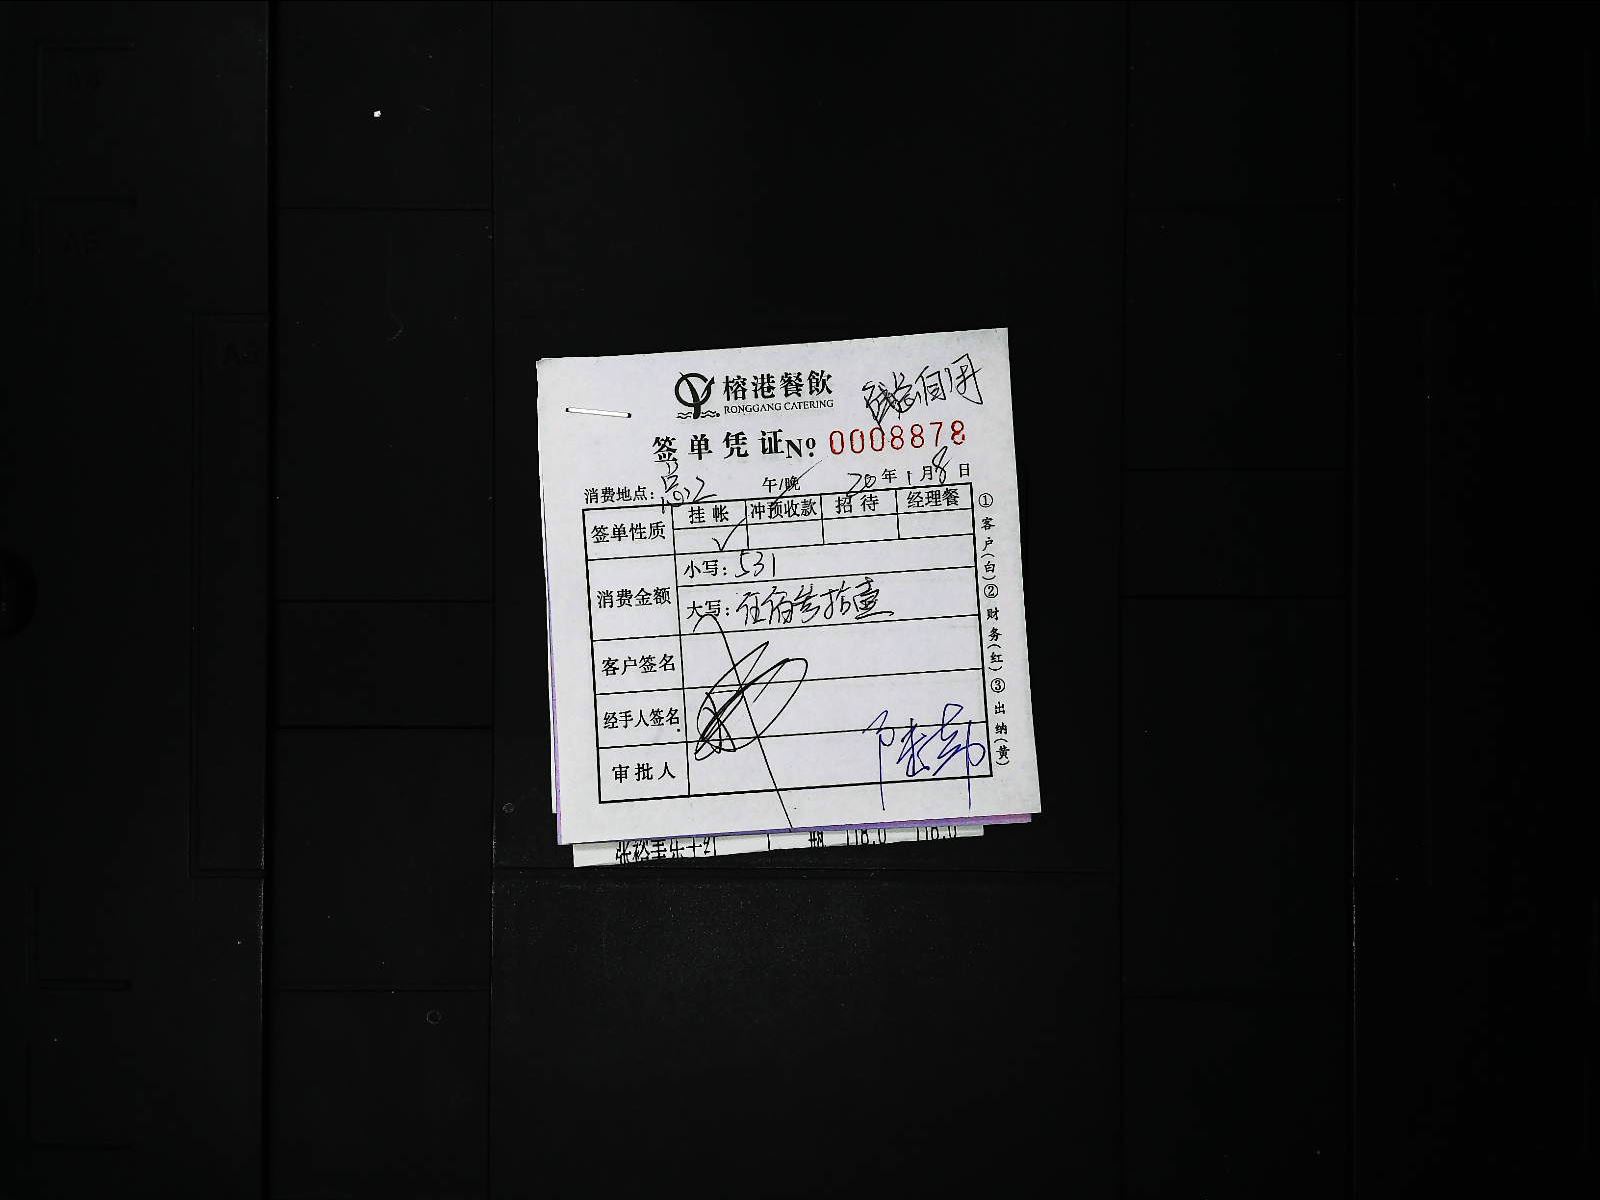 榕港餐飲
RONGGANG CATERING
签单凭证 №: 0008878
消费地点: 午/晚 20年1月8日
签单性质 挂帐 冲预收款 招待 经理餐
√
消费金额 小写: 531
大写: 伍佰叁拾壹
客户签名
经手人签名
审批人
①客户(白)②财务(红)③出纳(黄)
118.0 118.0